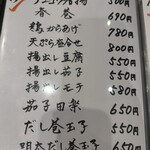 揚 500
春巻 690円
鶏からあげ 780円
天ぷら盛合せ 800円
揚出し豆腐 550円
揚出し茄子 550円
揚出しモチ 580円
茄子田楽 650円
だし巻玉子 550円
明太だし巻玉子 650円